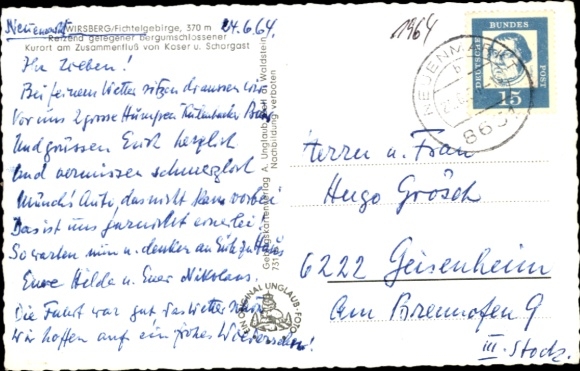 Neuenmarkt
WIRSBERG/Fichtelgebirge, 370 m
24.6.64.
Reizend gelegener bergumschlossener
Kurort am Zusammenfluß von Koser u. Schorgast
Ihr Lieben!
Bei feinem Wetter sitzen draussen wir
Vor uns 2 grosse Humpen Kulmbacher Bier
Und grüssen Euch herzlich
und vermissen schmerzlich
Münch's Auto, das nicht kam vorbei
Das ist uns garnicht einerlei.
So warten nun u. denken an Euch zu Haus
Eure Hilde u. Euer Nikolaus.
Die Fahrt war gut das Wetter
Wir hoffen auf ein frohes Wiedersehen!
Gebirgskartenverlag A. Unglaub, Zell a. Waldstein
731
Nachbildung verboten
EIN ORIGINAL UNGLAUB-FOTO
1964
DEUTSCHE BUNDES POST
15
NEUENMARKT
8651
Herrn u. Frau
Hugo Grösch
6222 Geisenheim
Am Brennofen 9
III. Stock.